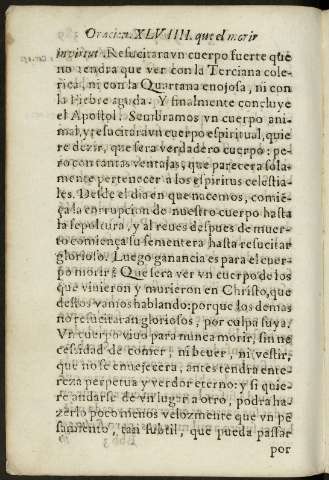 Oracion. XLVIIII. que el morir
invirtut. Resucitara vn cuerpo fuerte que
no tendra que ver con la Terciana cole-
rica, ni con la Quartana enojosa, ni con
la Fiebre aguda. Y finalmente concluye
el Apostol. Sembramos vn cuerpo ani-
mal, y resucitarà vn cuerpo espiritual, quie
re dezir, que sera verdadero cuerpo: pe-
ro con tantas ventajas, que parecera sola-
mente pertenecer à los espiritus celestia-
les. Desde el dia en que nacemos, comiē-
ça la corrupcion de nuestro cuerpo hasta
la sepoltura, y al reues despues de muer-
to comiença su sementera hasta resucitar
glorioso. Luego ganancia es para el cuer-
po morir? Que sera ver vn cuerpo de los
que vinieron y murieron en Christo, que
destos vamos hablando: porque los demas
no resucitaran gloriosos, por culpa suya.
Vn cuerpo viuo para nunca morir, sin ne
cessidad de comer, ni beuer, ni vestir,
que no se enuejecera, antes tendra ente-
reza perpetua y verdor eterno: y si quie-
re andarse de vn lugar a otro, podra ha-
zerlo poco menos velozmente que vn pē
samiento, tan subtil, que pueda passar
por